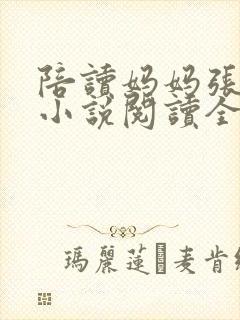 陪讀媽媽張
小說閱讀全
瑪麗蓮麥肯